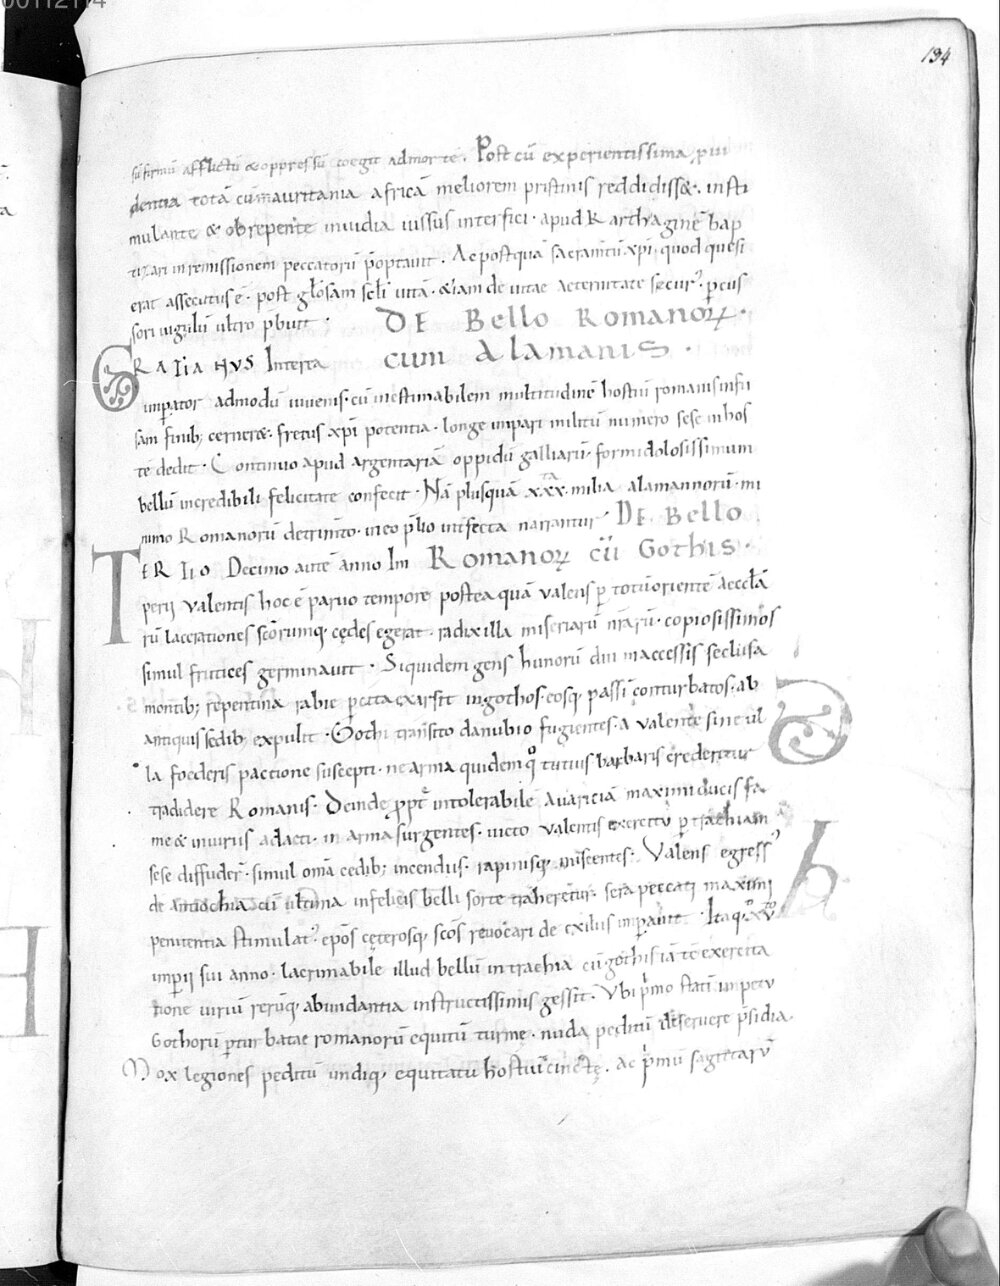 00112114
134
su firmu afflictu & oppressu coegit ad morte. Post cu experientissima, puii
dentia totā cū mauritania africā meliorem pristinis reddidiss&. insti
mulante & obrepente inuidia iussus interfici. apud Karthaginē bap
tizari in remissionem peccatorū p̄optauit. Ac postquā sacramtū xpi. quod quesi
erat assecutus ē. post glōsam sclī uitā. &iam de uitae aeternitate secur'. p̄cus
sori iugulū ultro p̄buit. DE Bello Romanoꝝ.
GRATIANVS Interea cum Alamanis.
imperator admodū iuuenis. cū inestimabilem multitudinē hostiū romanis infu
sam finib; cerner&. fretus xpi potentia. longe inpari militū numero sese in hos
tē dedit. Continuo apud argentariā oppidū galliarū formidolosissimum
bellū incredibili felicitate confecit. Nā plusquā xxx.ta milia alamannorū. mi
nimo Romanorū detrimto. in eo p̄lio intfecta narrantur. DE Bello
TERTIO Decimo autē anno Im Romanoꝝ cū Gothis.
perii Valentis hoc ē paruo tempore postea quā valens p totū oriente aeccl̄a
rū lacerationes scōrumq; cędes egerat. radix illa miseriarū nr̄arū. copiosissimos
simul frutices germinauit. Siquidem gens hunorū diu inaccessis seclusa
montib; repentina rabie p̄cita exarsit in gothos. eosq; passī conturbatos. ab
antiquis sedib; expulit. Gothi transito danubio fugientes. a valente sine ul
la foederis pactione suscepti. ne arma quidem qo tutius barbaris crederetur
tradidere Romanis. Deinde p̄pt̄ intolerabilē auariciā maximi ducis fa
me & iniuriis adacti. in arma surgentes. uicto valentis exercitu p trachiam
sese diffuder̄. simul omā cedib; incendiis. rapinisq; miscentes. Valens egress'
de antiochia cū ultima infelicis belli sorte traheretur. sera peccati maximi
penitentia stimulat'. epōs cęterosq; scōs reuocari de exiliis imp̄auit. Itaq; xvo
imperii sui anno. lacrimabile illud bellū in trachia cū gothis iā tē exercita
tione uiriū rerūq; abundantia instructissimis gessit. Vbi p̄mo stati impetu
Gothorū p̄turbatae romanorū equitū turmę. nuda peditū deseruere p̄sidia.
Mox legiones peditū undiq; equitatu hostiū cinctę. ac p̄mū sagittarū